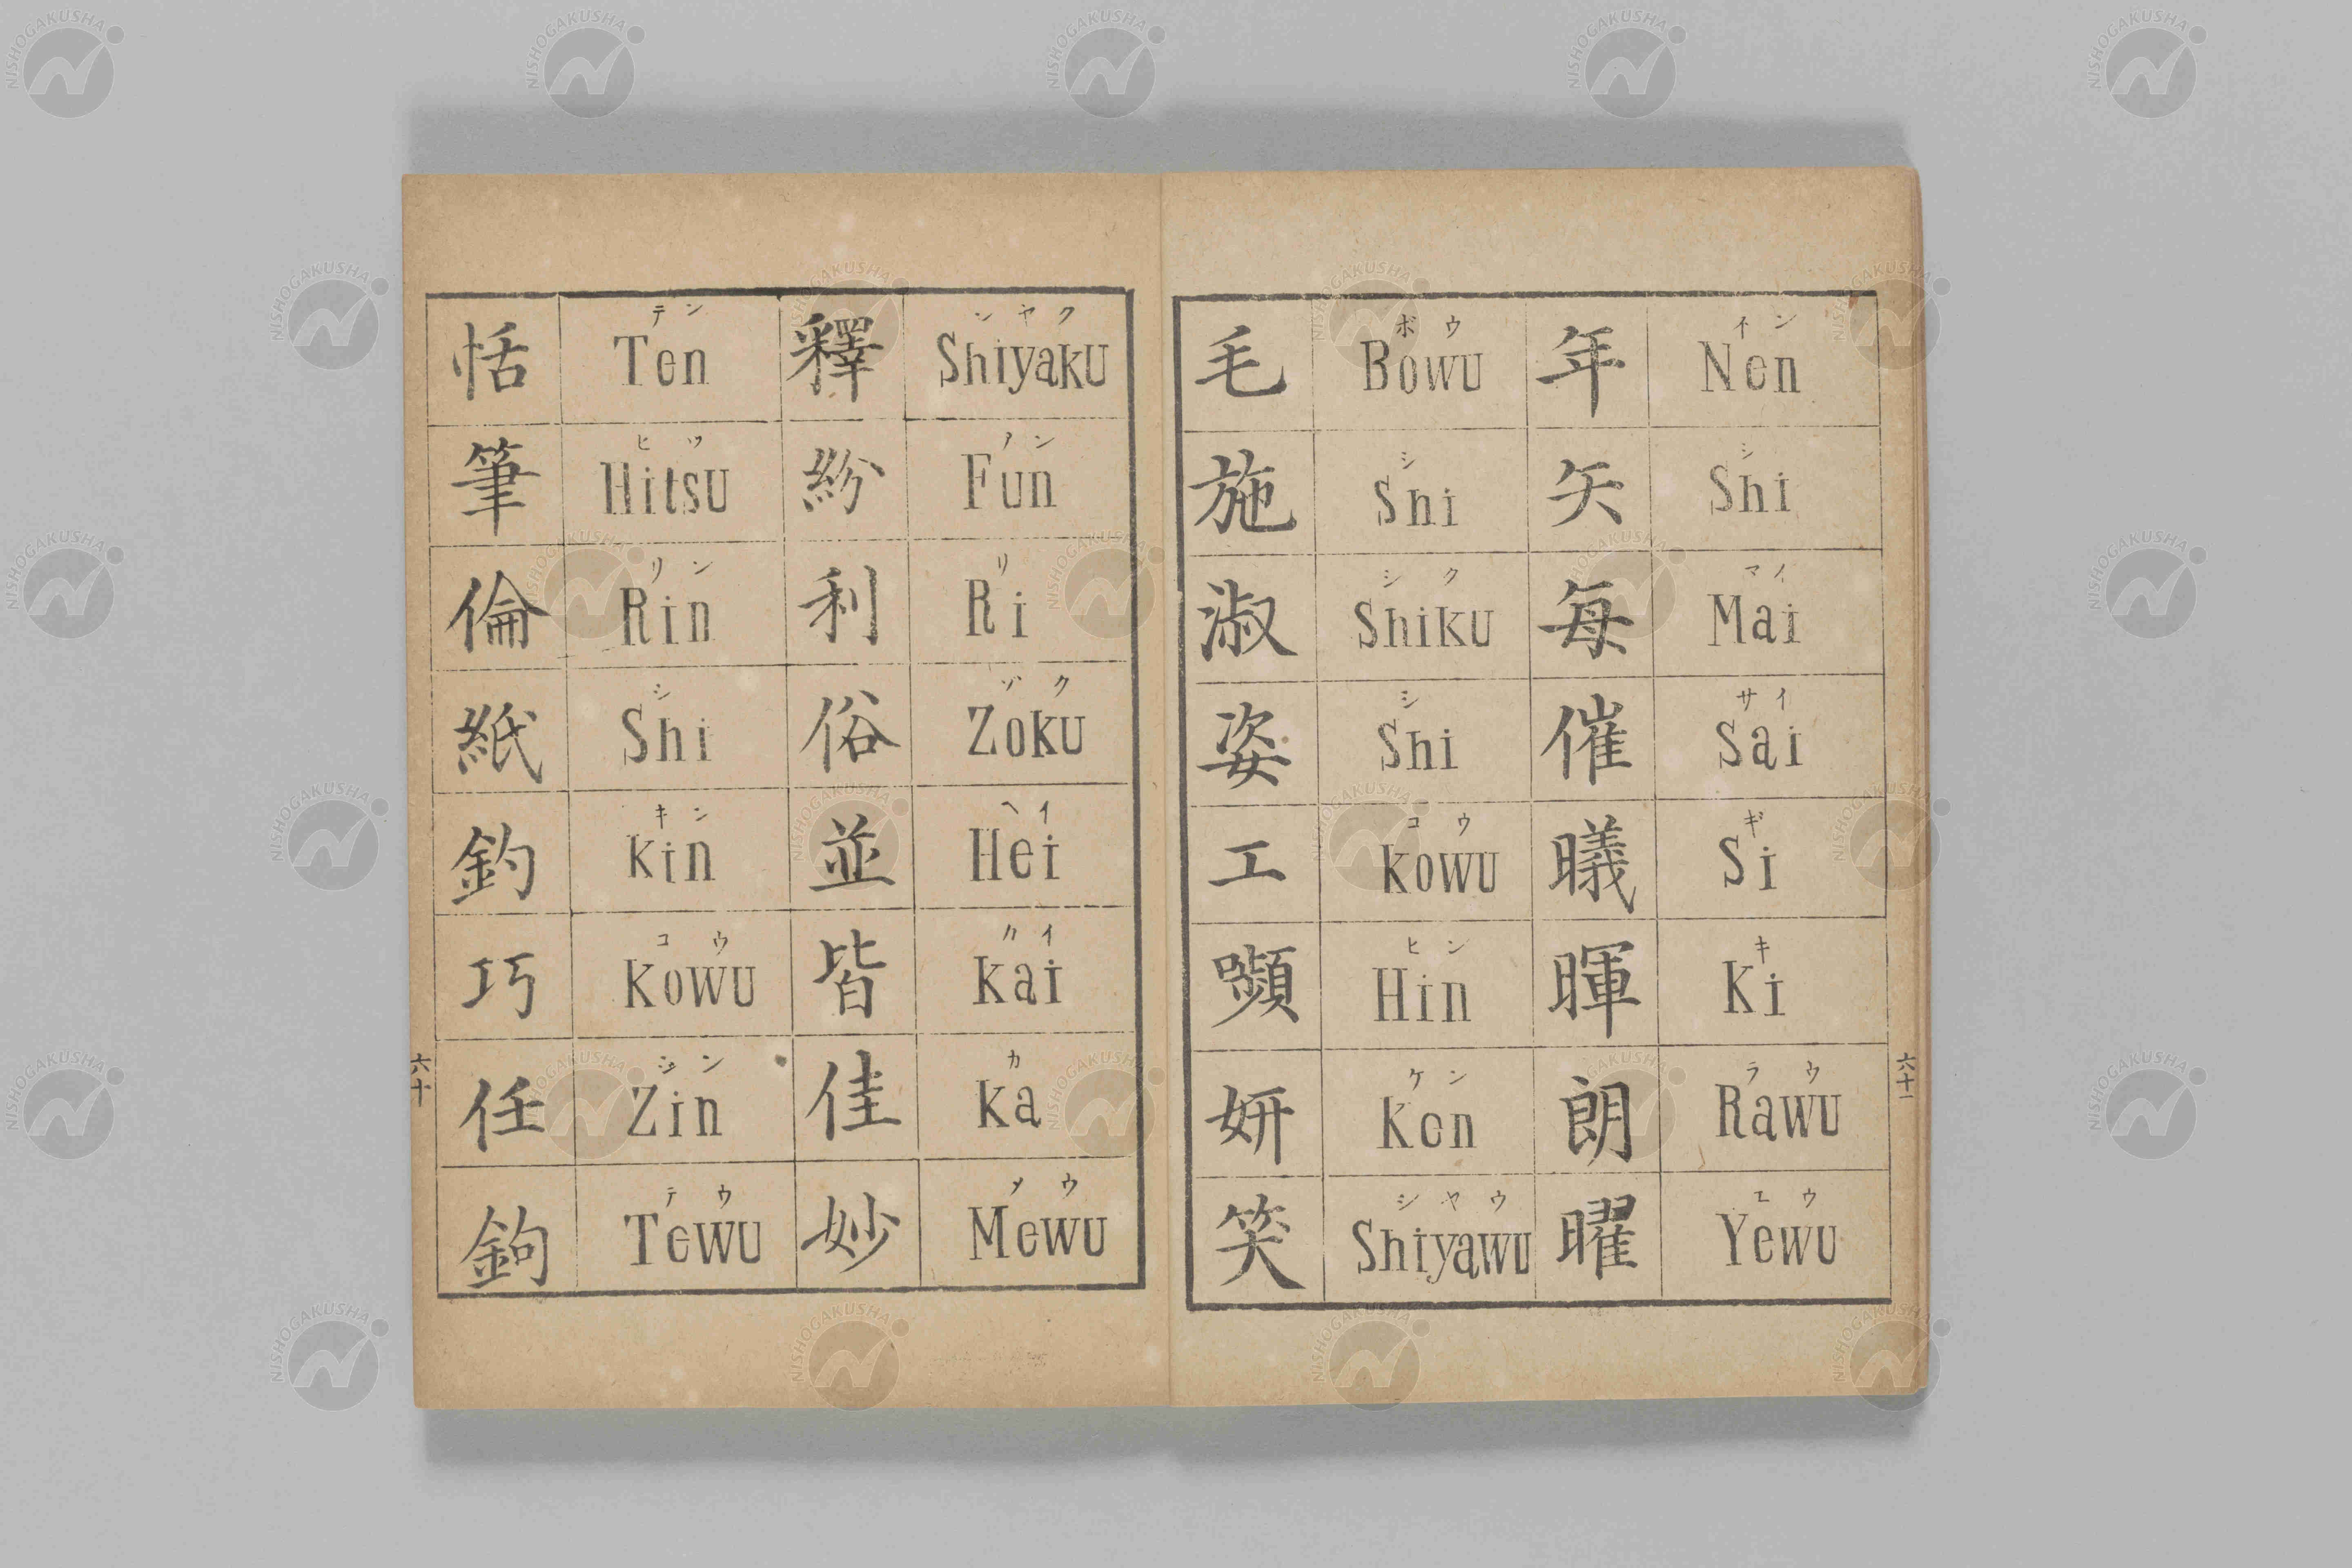 テン
恬 Ten
ヒツ
筆 Hitsu
リン
倫 Rin
シ
紙 Shi
キン
鈞 Kin
コウ
巧 Kowu
ジン
任 Zin
テウ
鉤 Tewu
シヤク
釋 Shiyaku
フン
紛 Fun
リ
利 Ri
ゾク
俗 Zoku
ヘイ
並 Hei
カイ
皆 Kai
カ
佳 Ka
メウ
妙 Mewu
六十
ボウ
毛 Bowu
シ
施 Shi
シク
淑 Shiku
シ
姿 Shi
コウ
工 Kowu
ヒン
嚬 Hin
ケン
妍 Ken
シヤウ
笑 Shiyawu
子ン
年 Nen
シ
矢 Shi
マイ
每 Mai
サイ
催 Sai
ギ
曦 Si
キ
暉 Ki
ラウ
朗 Rawu
エウ
曜 Yewu
六十一
NISHOGAKUSHA